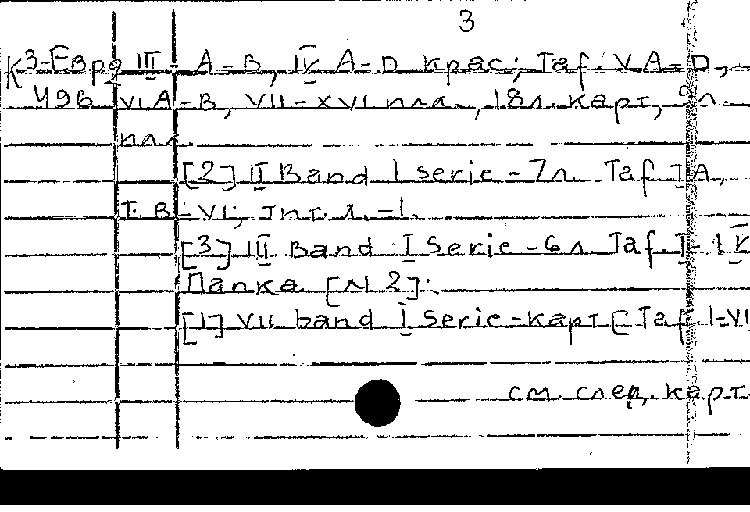 3
К3-Евр2 III - А-В, IV А-D крас; Taf. V A-D,
Ч96 VI A-B, VII-XVI пла., 18л. карт, л.
пла.
[2] II Band I serie - 7л. Taf. I A,
I. B-VI; Тит. л. - 1.
[3] III Band I Serie - 6л. Taf. I-IV
Папка [N 2]:
[1] VII band I Serie - карт [Taf. I-VI
см. след. карт.